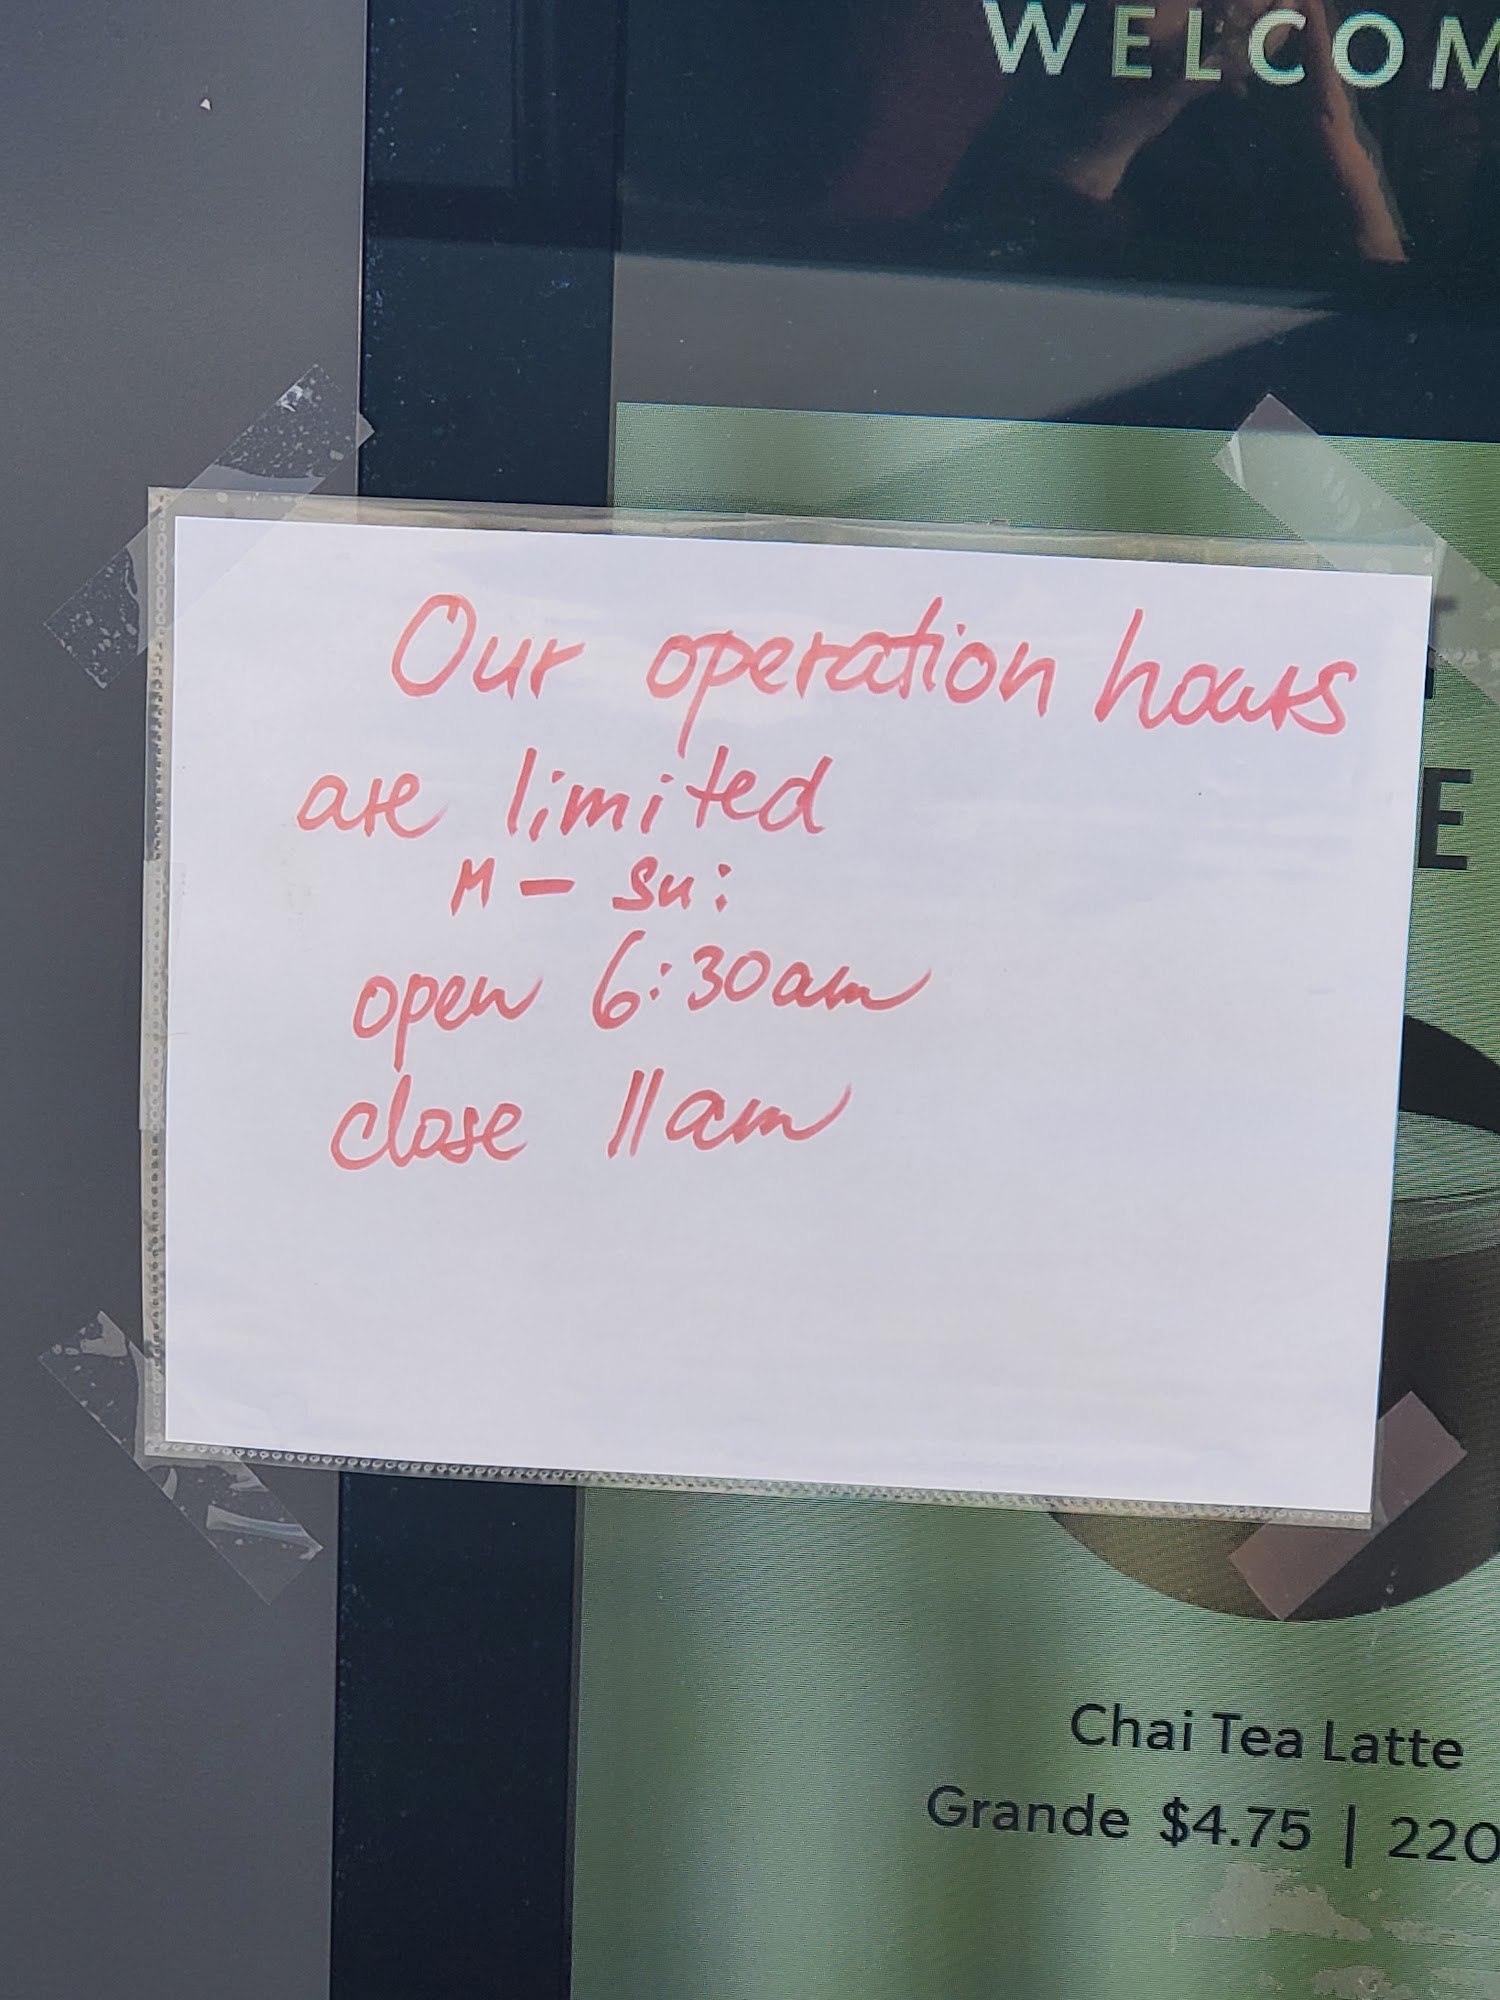 WELCOM
Our operation hours
are limited
M - Su:
open 6:30am
close 11am
E
Chai Tea Latte
Grande $4.75 | 220